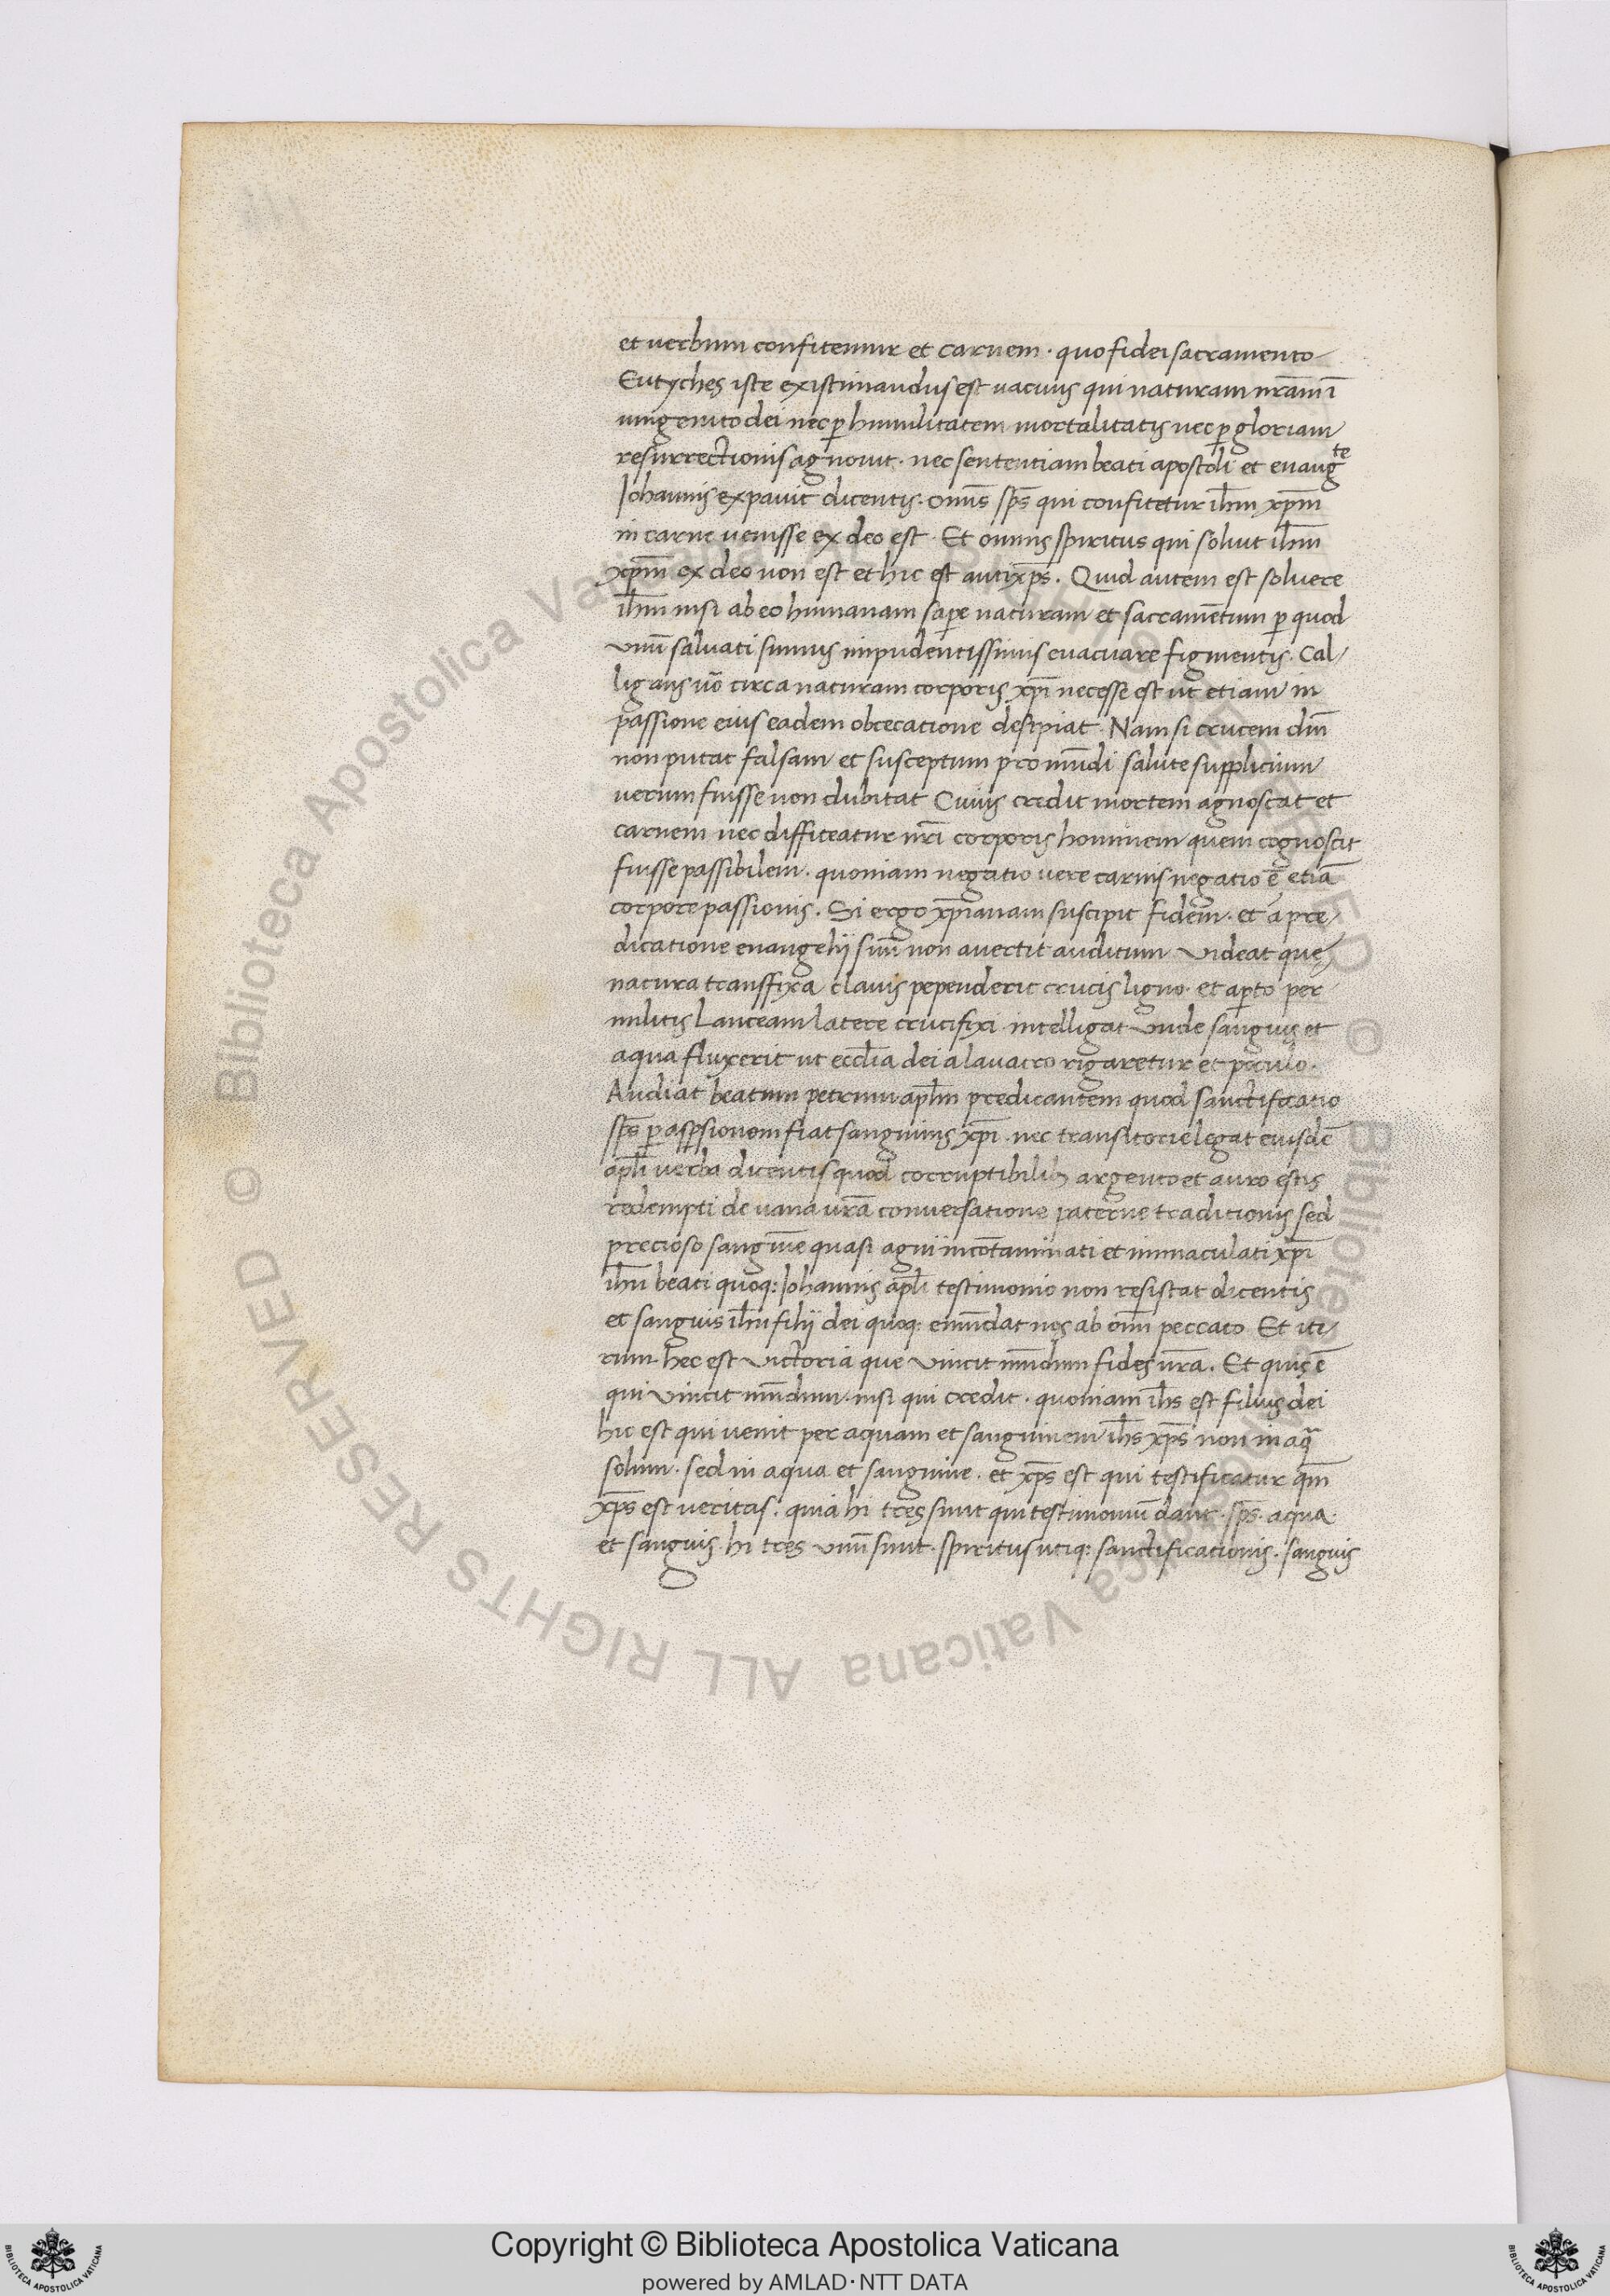 et verbum confitemur et carnem · quo fidei sacramento
Eutyches iste existimandus est vacuus qui naturam nr̄am ī
unigenito dei nec ꝑ humilitatem mortalitatis nec ꝑ gloriam
resurrectionis agnovit · nec sententiam beati apostoli et evangᵗᵉ
Iohannis expavit dicentis · omīs sp̄s qui confitetur ih̄m xp̄m
in carne venisse ex deo est · Et omnis spiritus qui solvit ih̄m
xp̄m ex deo non est et hic est antixp̄s . Quid autem est solvere
ih̄m nisi ab eo humanam saꝑe naturam et sacramētum ꝑ quod
unū salvati sumus impudentissimis evacuare figmentis · Cal
ligans ūo circa naturam corporis xp̄i necesse est ut etiam in
passione eius eadem obcecatione desipiat · Nam si crucem dn̄i
non putat falsam et susceptum pro mūdi salute supplicium
verum fuisse non dubitat Cuius credit mortem agnoscat et
carnem nec diffiteatur nr̄i corporis hominem quem cognoscit
fuisse passibilem · quoniam negatio vere carnis negatio ē etiā
corpore passionis . Si ergo xp̄ianam suscipit fidem · et a pre
dicatione evangelij suū non avertit auditum videat que
natura transfixa clavis pependerit crucis ligno · et aꝑto per
militis lanceam latere crucifixi intelligat unde sanguis et
aqua fluxerit ut eccl̄ia dei a lavacro rigaretur et poculo .
Audiat beatum petrum apl̄m predicantem quod sanctificatio
sp̄s ꝑ asꝑsionem fiat sanguinis xp̄i · nec transitorie legat eiusdē
apl̄i verba dicentis quod corruptibilibꝫ argento et auro estis
redempti de vana vr̄a conversatione paterne traditionis sed
precioso sanguīe quasi agni incōtaminati et immaculati xp̄i
ih̄u beati quoq: Iohannis apl̄i testimonio non resistat dicentis
et sanguis ih̄u filij dei quoq: emūdat nos ab om̄i peccato Et ite
rum · hec est victoria que vincit mūdum fides nr̄a . Et quis ē
qui vincit mūdum · nisi qui credit · quoniam ih̄s est filius dei
hic est qui venit per aquam et sanguinem ih̄s xp̄s non in aqᵃ
solum · sed in aqua et sanguine · et xp̄s est qui testificatur qm̄
xp̄s est veritas : quia hi tres sunt qui testimoniū dant · sp̄s · aqua ·
et sanguis · hi tres unū sunt · spiritus utiq: sanctificationis · sanguis
© Biblioteca Apostolica Vaticana ALL RIGHTS RESERVED
Copyright © Biblioteca Apostolica Vaticana
powered by AMLAD·NTT DATA
BIBLIOTECA APOSTOLICA VATICANA
BIBLIOTECA APOSTOLICA VATICANA